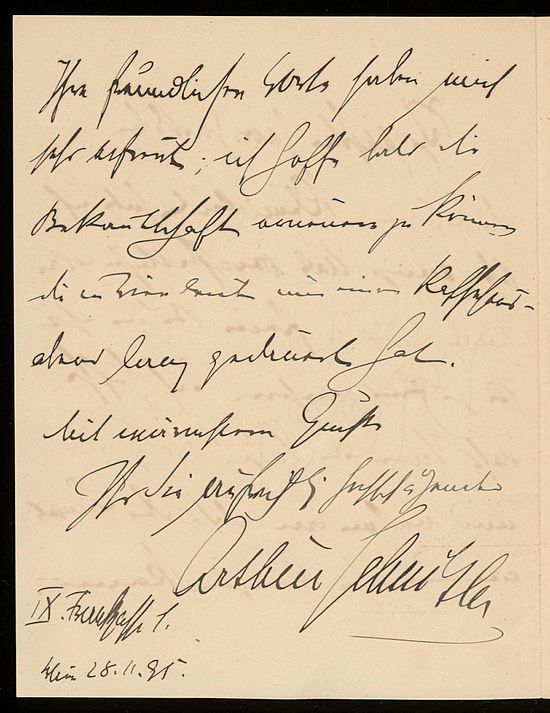 Ihre freundlichen Worte haben mich
sehr erfreut; ich hoffe bald die
Bekanntschaft erneuern zu können,
die in Wien leider nur einen Kaffeehaus-
abend lang gedauert hat.
Mit wärmstem Gruße
Ihr Sie aufrichtig hochschätzender
Arthur Schnitzler
IX. Frankgasse 1.
Wien 28.11.95.